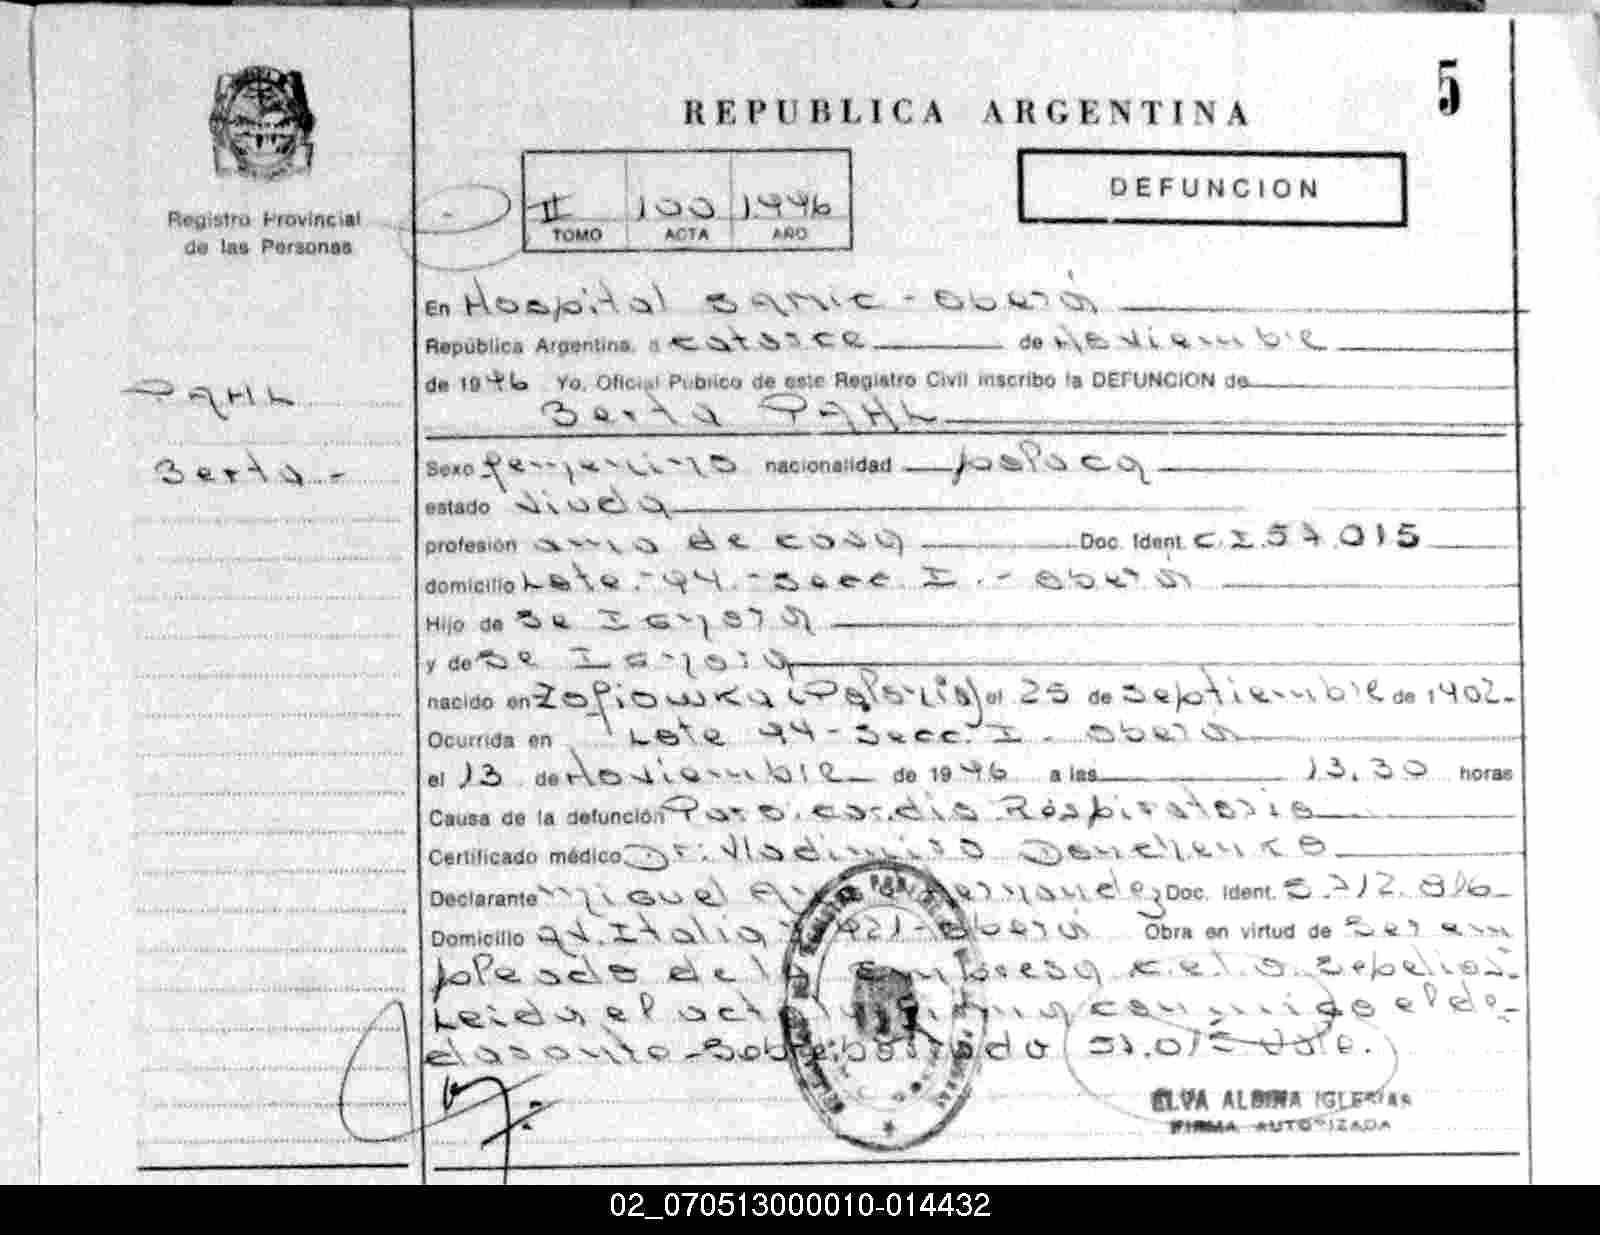 5
REPUBLICA ARGENTINA
DEFUNCION
II 100 1.996
TOMO ACTA AÑO
Registro Provincial
de las Personas
PAHL
Berta.-
En Hospital Samic - Oberá
República Argentina, a catorce de Noviembre
de 1996 Yo, Oficial Publico de este Registro Civil inscribo la DEFUNCION de
Berta PAHL
Sexo femenino nacionalidad polaca
estado viuda
profesión ama de casa Doc. Ident. C.I.57.015
domicilio Lote.-94.-Secc. I.- Oberá
Hijo de Se Ignora
y de Se Ignora
nacido en Zofiowka (Polonia) el 25 de Septiembre de 1902-
Ocurrida en Lote 94-Secc. I - Oberá
el 13 de Noviembre de 1996 a las 13.30 horas
Causa de la defunción Paro cardio Respiratorio
Certificado médico Dr: Vladimiro Donchenko
Declarante Miguel Hernandez Doc. Ident.
Domicilio Av. Italia 921-Oberá Obra en virtud de Ser em
pleado de la Empresa
Leida el acta firma conmigo el de-
Sobreborrado 57.015 Vale.
ELVA ALBINA IGLESIAS
FIRMA AUTORIZADA
02_070513000010-014432